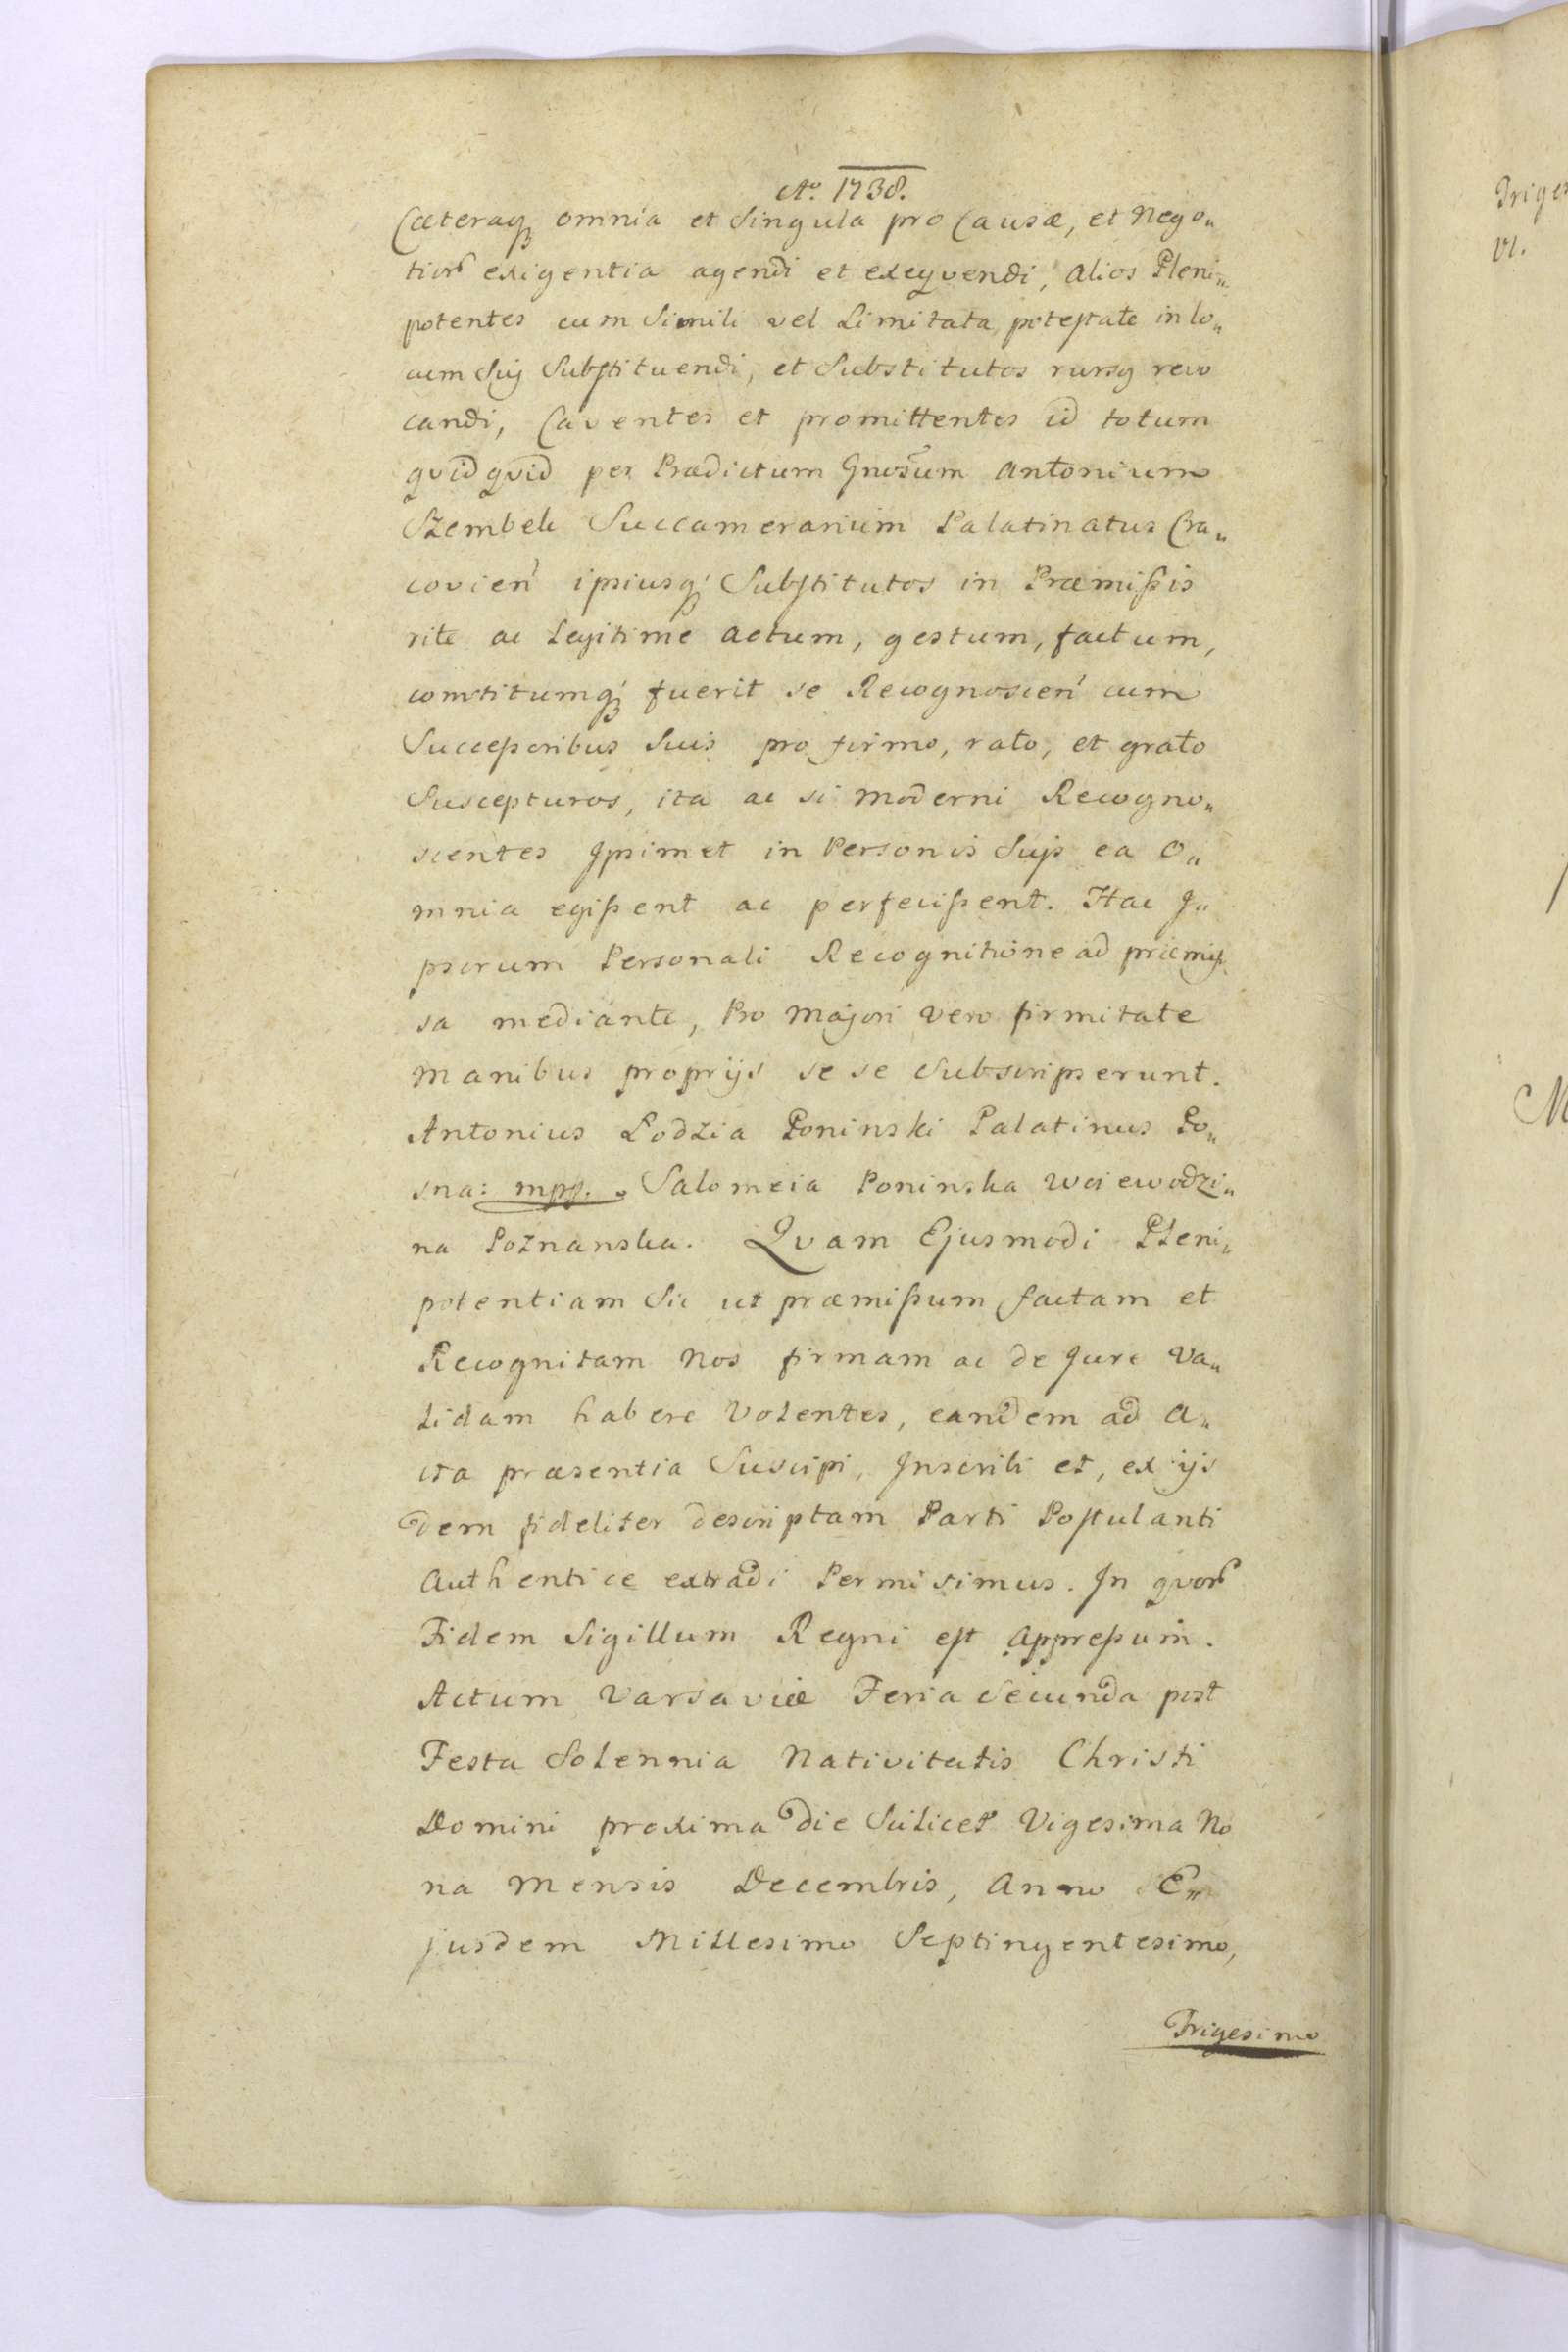 Aº. 1738.
Cæteraqȝ omnia et Singula pro Causæ, et Nego„
tior͂ exigentia agendi et exeqvendi, alios Pleni„
potentes cum Simili vel Limitata potestate in lo„
cum Suj Substituendi, et Substitutos rursq revo
candi, Caventes et promittentes id totum
qvidqvid per Prædictum Gnosum Antonium
Szembek Succamerarium Palatinatus Cra„
covien̄ ipsiusqȝ Substitutos in Præmissis
rite ac Legitime actum, gestum, factum,
constitumqȝ fuerit se Recognoscen̄ cum
Successoribus Suis pro firmo, rato, et grato
Suscepturos, ita ac si moderni Recogno„
scientes Jpsimet in Personis Sujs ea O„
mnia egissent ac perfecissent. Hac J„
psorum Personali Recognitione ad præmis„
sa mediante, Pro Majori vero firmitate
Manibus proprijs se se Subscripserunt.
Antonius Lodzia Poninski Palatinus Po„
sna: mpp. Salomeia Poninska Woiewodzi„
na Poznanska. Qvam Ejusmodi Pleni„
potentiam Sic ut præmissum factam et
Recognitam Nos firmam ac de Jure Va„
lidam habere Volentes, eandem ad A„
cta præsentia Suscipi, Jnscribi et, ex ijs
dem fideliter descriptam Parti Postulanti
Authentice extradi Permisimus. Jn qvor͂
Fidem Sigillum Regni est appressum.
Actum Varsaviæ Feria Secunda post
Festa Solennia Nativitatis Christi
Domini proxima die Scilicet Vigesima No
na Mensis Decembris, Anno E„
jusdem Millesimo Septingentesimo,
Trigesimo
Triges
VI.
M